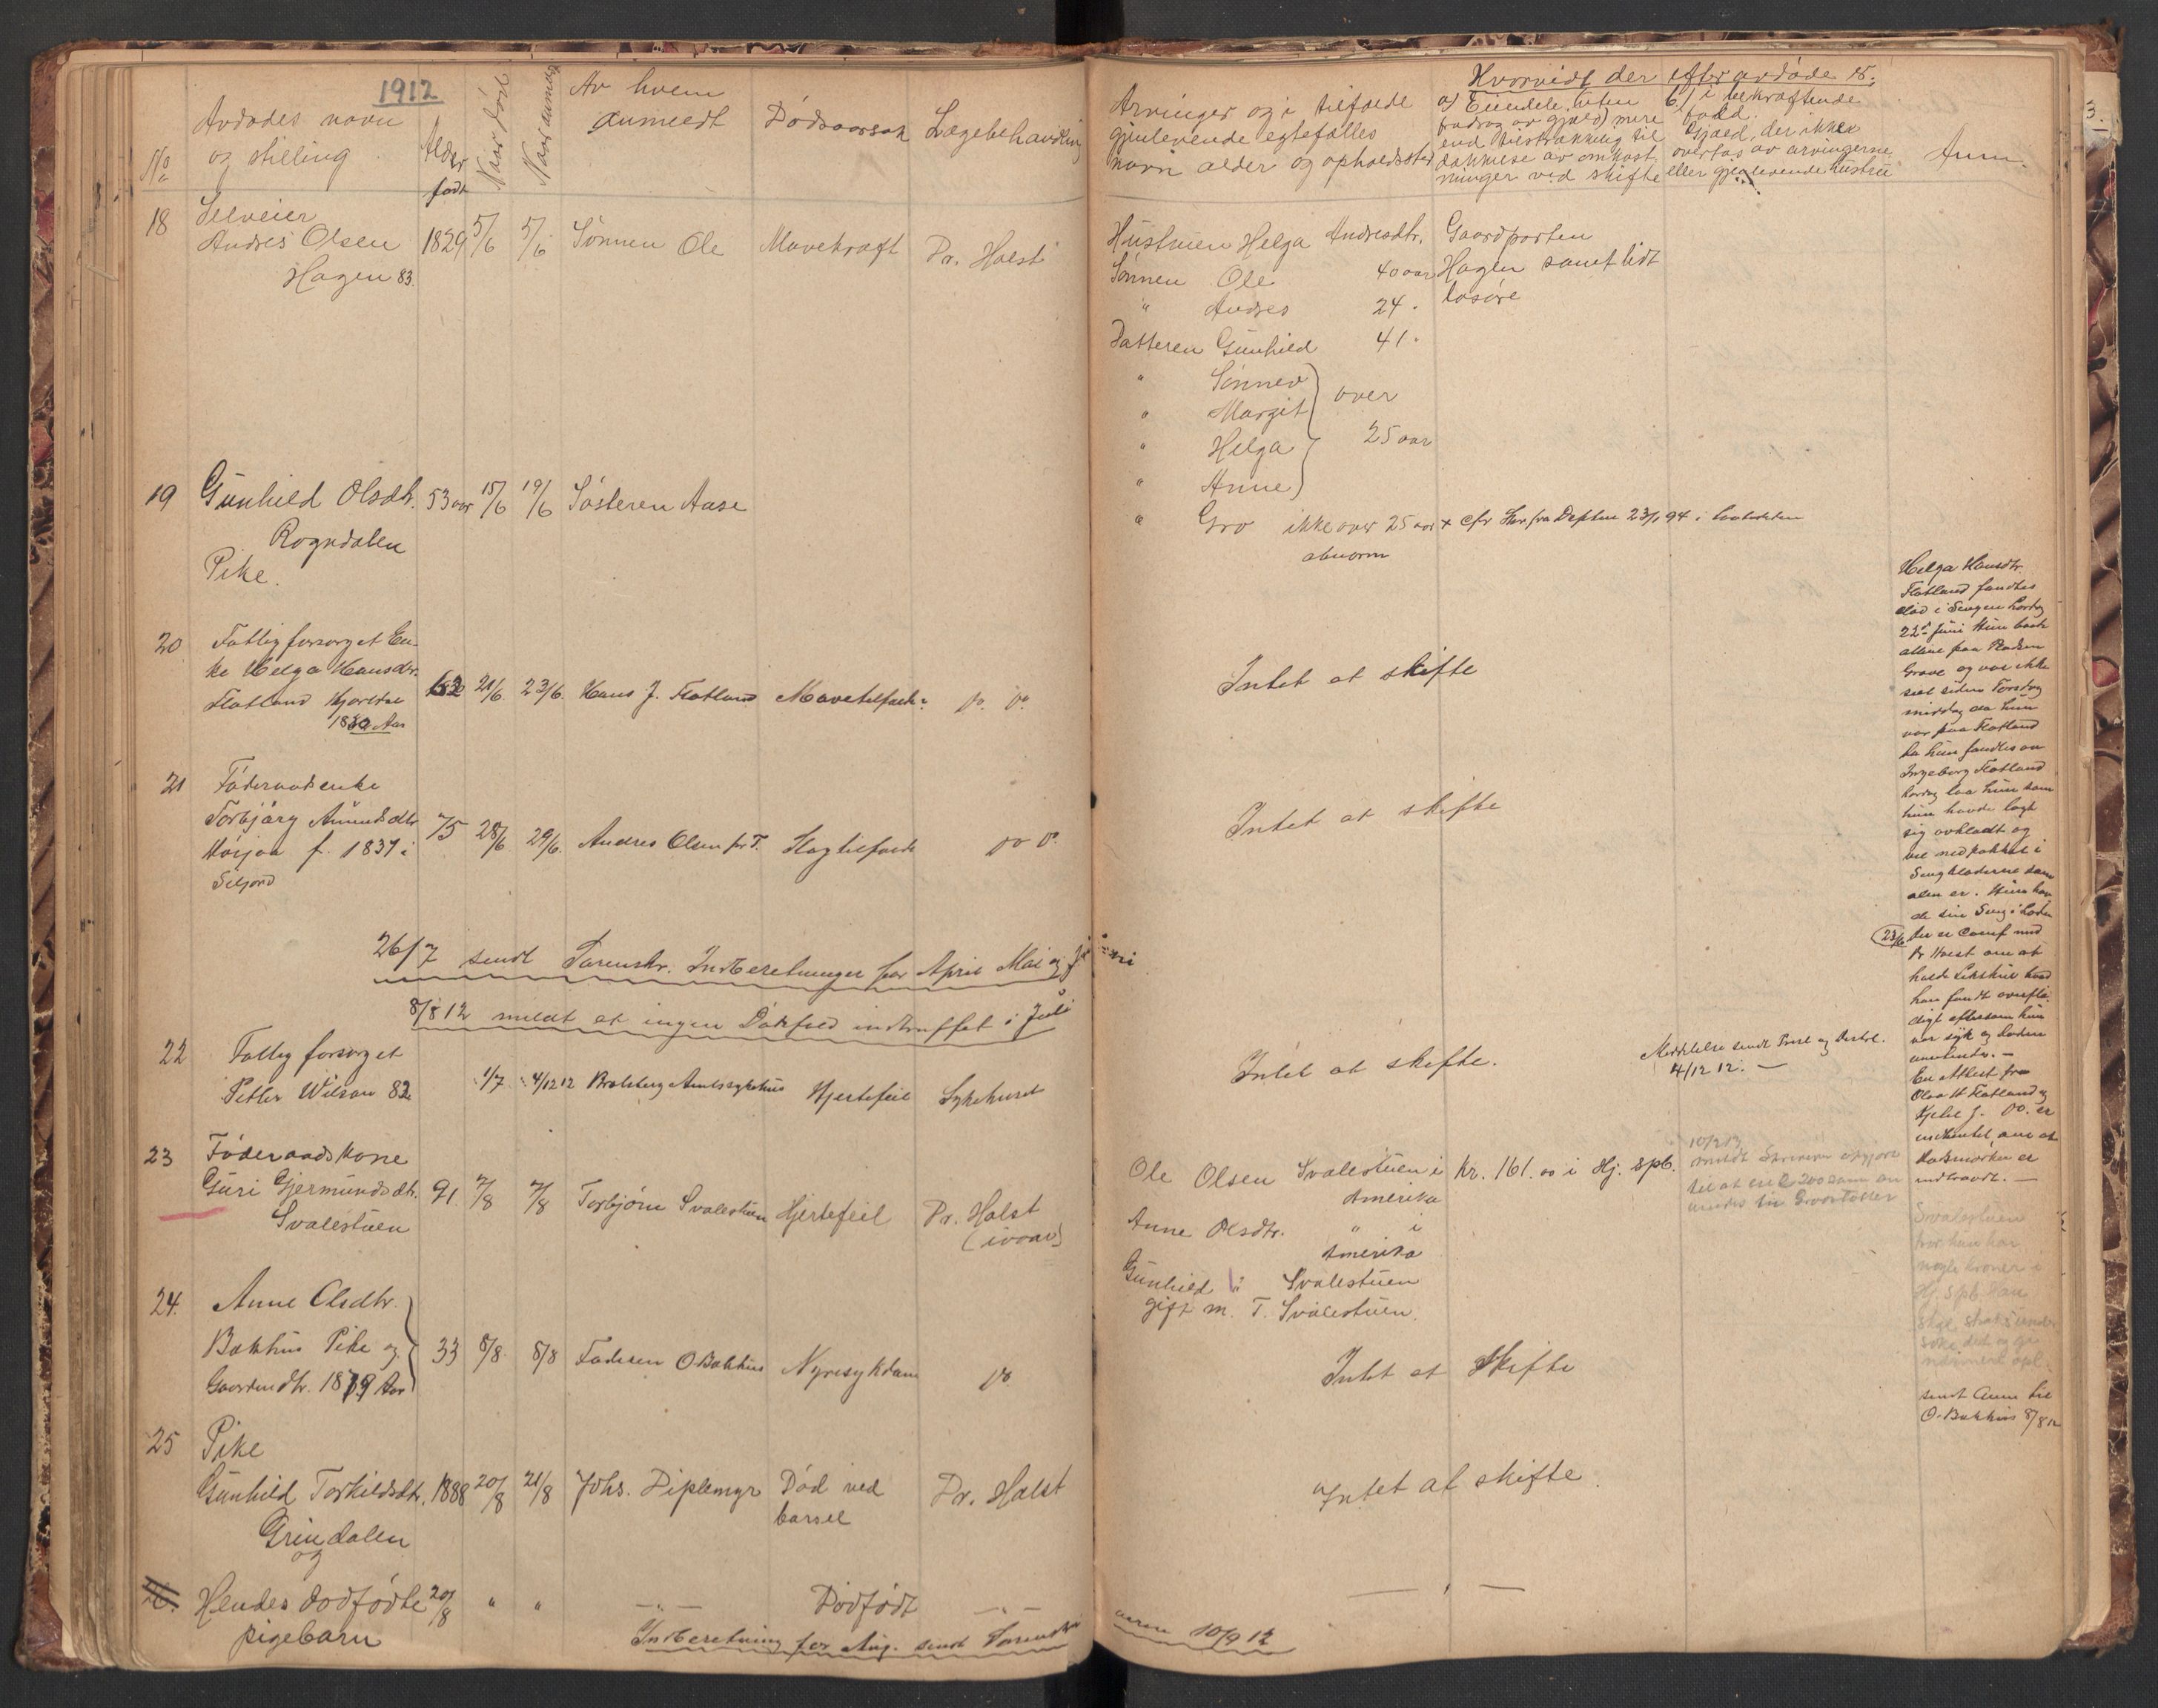 1912
No
Avdødes navn
og stilling
Alder
født
Naar død
Naar anmeldt
Av hvem
anmeldt
Dødsaarsak
Lægebehandling
Arvinger og i tilfælde
gjenlevende egtefælles
navn alder og opholdssted
Hvorvidt der efter avdøde er:
a) Eiendele (uten
fradrag av gjæld) mere
end tilstrækkelig til
dækkelse av omkost-
ninger ved skifte
b) i bekræftende
fald
Gjæld, der ikke
overtas av arvingerne
eller gjenlevende hustru
Anm.
18
Selveier
Andres Olsen
Hagen 83
1829
5/6
5/6
Sønnen Ole
Mavekræft
Dr. Holst
Hustruen Helga Andresdtr.
Gaardparten
Sønnen Ole 40 aar
Hagen samt lidt
" Andres 24 "
løsøre
Datteren Gunhild 41 "
" Sønnev
" Margit
over
" Helga
25 aar
" Anne
" Gro ikke over 25 aar + cfr Skr. fra Deptm 23/1 94 i
abnorm
19
Gunhild Olsdtr.
Rogndalen
Pike.
53 aar
15/6
19/6
Søsteren Aase
20
Fattigforsørget En-
ke Helga Hansdtr.
Flatland Hjartdal
21/6
23/6.
Hans J. Flatland
Mavetilfælde
Do. Do.
Intet at skifte
21
Føderaadsenke
Torbjørg Amundsdtr
f. 1837 i
Seljord
75
28/6
29/6.
Andres Olsen fr T.
Slagtilfælde
Do Do.
Intet at skifte
26/7 sendt Sorenskr. Indberetninger for April Mai og Juni
8/8 12 meldt at ingen Dødsfald indtruffet i Juli
22
Fattig forsørget
Petter Wilson 82
1/7
4/12 12
Bratsberg Amtssykehus
Hjertefeil
Sykehuset
Intet at skifte.
Meddelelse sendt Prest og Distrl.
4/12 12. —
23
Føderaadskone
Guri Gjermundsdtr.
Svalestuen
91.
7/8
7/8
Torbjørn Svalestuen
Hjertefeil
Dr. Holst
(ivaar)
Ole Olsen Svalestuen i
Amerika
Kr. 161.00 i Hj. spb.
Anne Olsdtr. " i
Amerika
Gunhild i Svalestuen
gift m. T. Svalestuen.
24.
Anne Olsdtr.
Bakhus Pike og
Gaardmdtr. 1879 Aar
33
8/8.
8/8
Faderen O Bakhus
Nyresykdom
Do
Intet at Skifte
25
Pike
Gunhild Torkildsdtr.
Grindalen
og
1888
20/8
21/8
Johs. Diplemyr
Død ved
barsel
Dr. Holst
Intet at skifte.
Hendes dødfødte
pigebarn
20/8
"
"
— " —
Dødfødt
— " —
— " —
Indberetning for Aug. sendt Sorenskri
veren 10/9 12
Helga Hansdtr.
Flatland fandtes
død i Sengen Lørdag
22de Juni Hun bodde
alene paa Pladsen
Grave og var ikke
set siden Torsdag
middag da hun
var paa Flatland
Da hun fandtes av
Ingeborg Flatland
Lørdag laa hun som
hun havde lagt
sig avklædt og
vel nedpakket i
Sengklæderne som
alm er. Hun hav-
de sin Seng i Laden
23/6 Der er Conf med
Dr Holst om at
holde Likskue hvad
han fandt overflø-
digt eftersom hun
var syk og Døden
ventendes. —
En Attest fra
Olav H Flatland og
Kjetil J. Do. er
indhentet om at
Dødsmerker er
indtraadt. —
10/2 13
meldt
Svalestuen
tror hun har
nogle kroner i
Hj. spb. Han
skal straks under-
søke det og gi
nærmere opl.
sendt Anm til
O. Bakhus 8/8 12